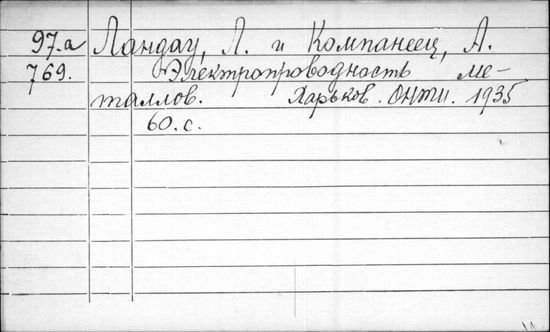 97.a Ландау, Л. и Компанеец, А.
769. Электропроводность ме-
таллов. Харьков. ОНТИ. 1935
60. с.